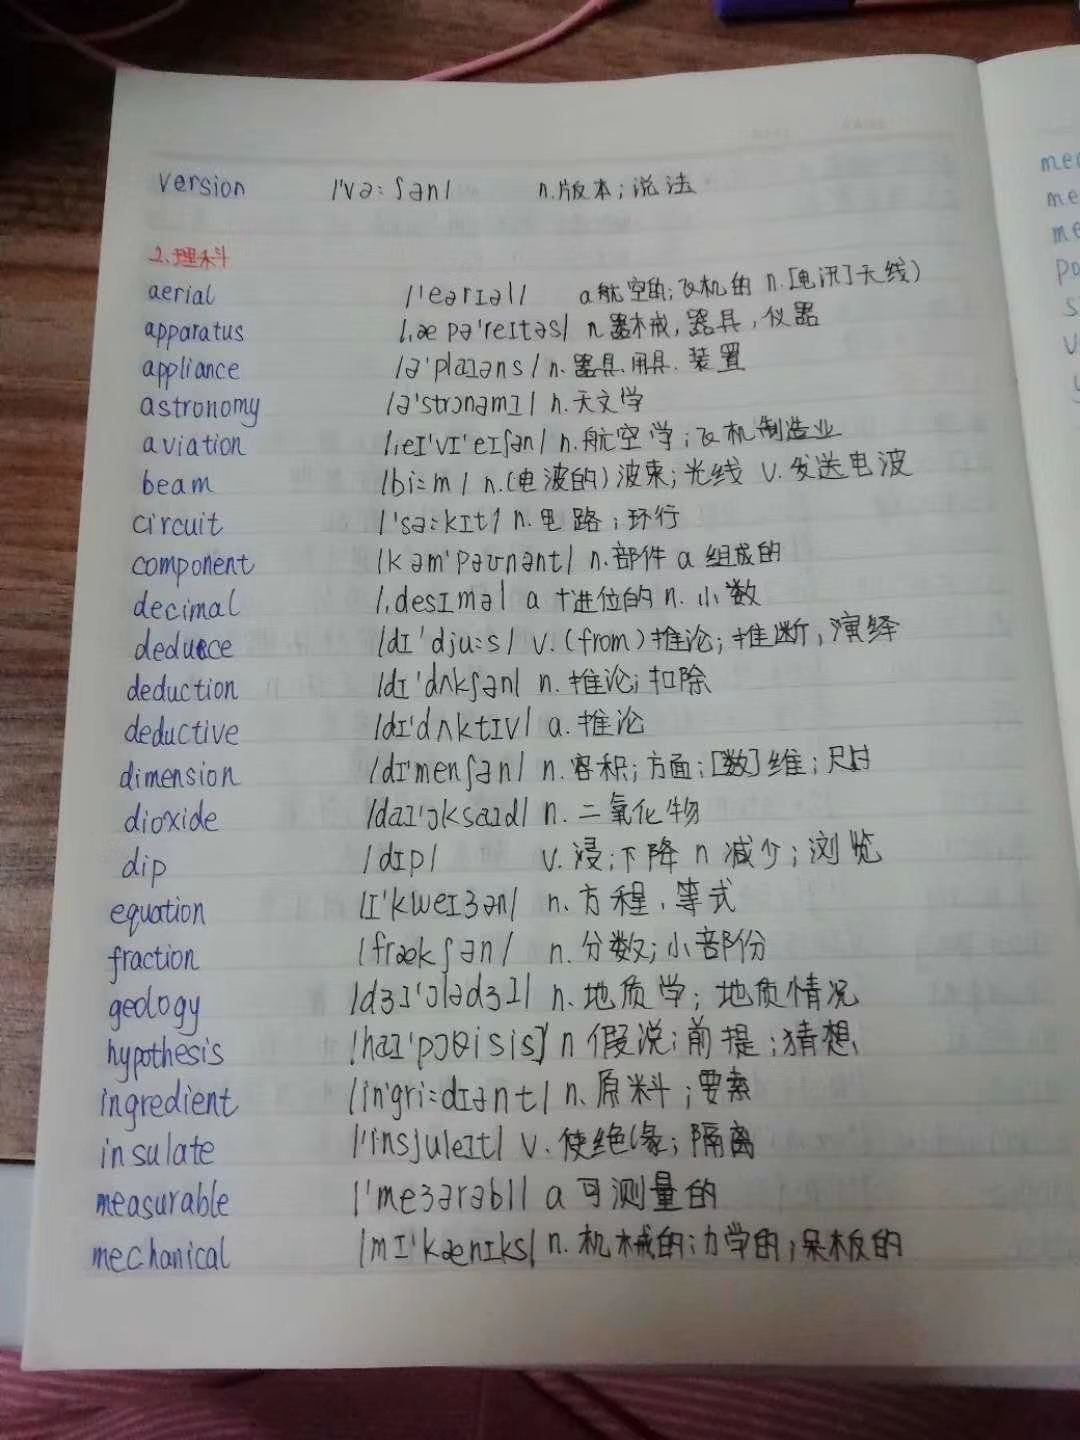 version /'və:ʃən/ n.版本;说法
2.理科
aerial /'eərɪəl/ a航空的;飞机的 n.[电讯]天线)
apparatus /,æpə'reɪtəs/ n器械,器具,仪器
appliance /ə'plaɪəns/ n.器具.用具.装置
astronomy /ə'strɔnəmɪ/ n.天文学
aviation /,eɪ'vɪ'eɪʃən/ n.航空学;飞机制造业
beam /bi:m/ n.(电波的)波束;光线 v.发送电波
circuit /'sə:kɪt/ n.电路;环行
component /kəm'pəʊnənt/ n.部件 a组成的
decimal /,desɪməl a 十进位的 n.小数
deduce /dɪ'dju:s/ v.(from)推论;推断,演绎
deduction /dɪ'dʌkʃən/ n.推论;扣除
deductive /dɪ'dʌktɪv/ a.推论
dimension /dɪ'menʃən/ n.容积;方面;[数]维;尺寸
dioxide /daɪ'ɔksaɪd/ n.二氧化物
dip /dɪp/ v.浸;下降 n减少;浏览
equation /ɪ'kweɪʒən/ n.方程.等式
fraction /frækʃən/ n.分数;小部份
geology /dʒɪ'ɔlədʒɪ/ n.地质学;地质情况
hypothesis /haɪ'pɔθisis] n假说;前提;猜想
ingredient /in'gri:dɪənt/ n.原料;要素
insulate /'insjuleɪt/ v.使绝缘;隔离
measurable /'meʒərəbl/ a可测量的
mechanical /mɪ'kænɪks/ n.机械的;力学的;呆板的